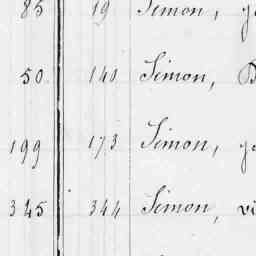 85 19 Simon,
50. 140 Simon,
199 173 Simon,
345 344 Simon, vi